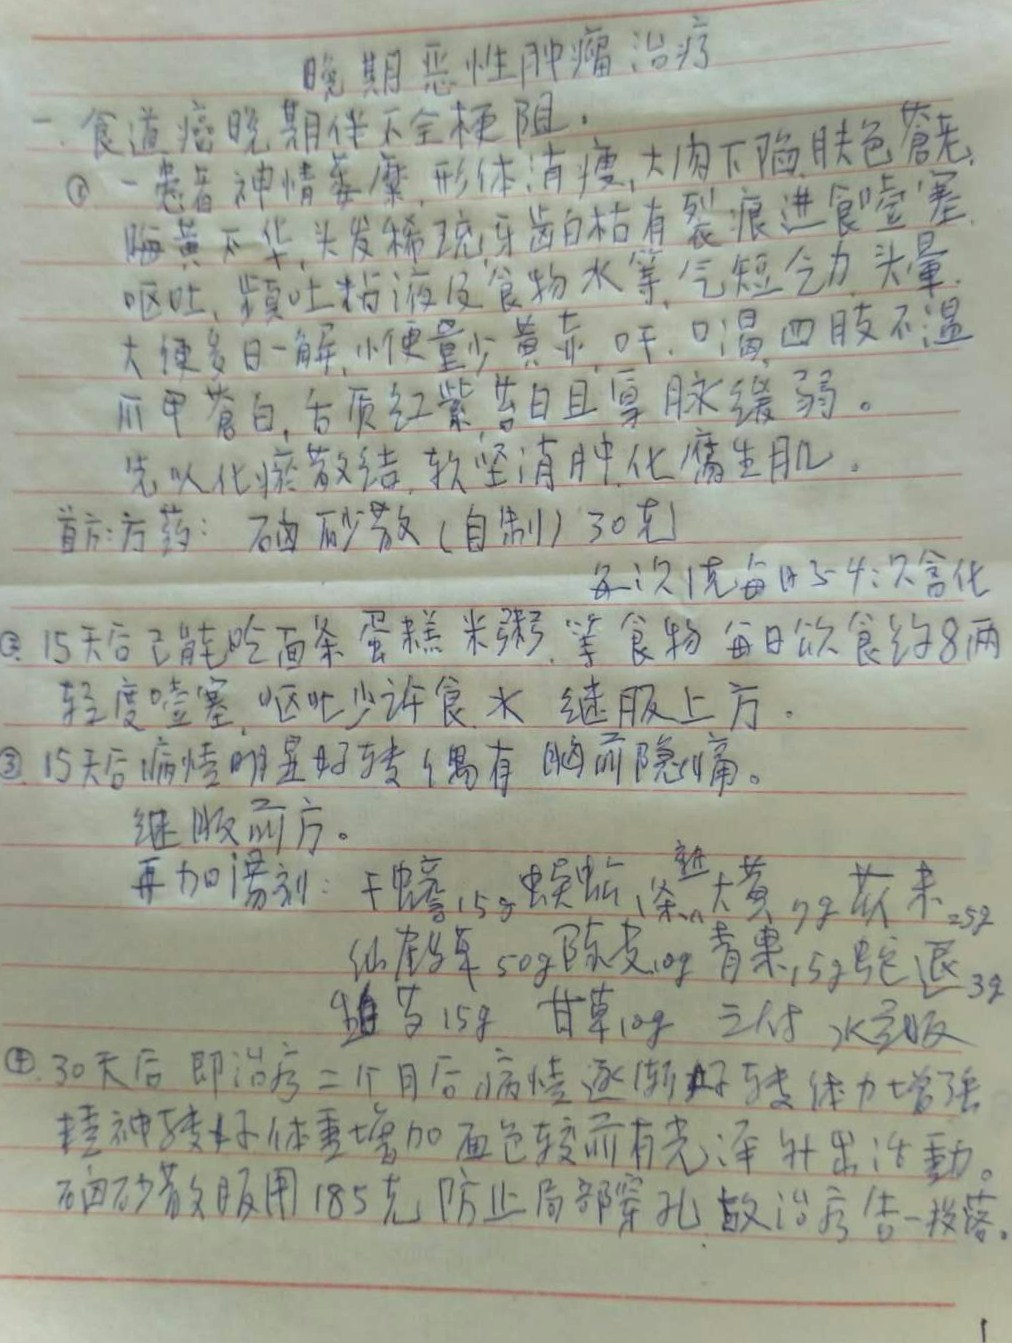 晚期恶性肿瘤治疗
一. 食道癌晚期伴不全梗阻.
① 一患者神情萎靡,形体消瘦,大肉下陷,肤色苍老,
晦黄不华,头发稀疏,牙齿白枯有裂痕进食噎塞,
呕吐,频吐粘液及食物水等,气短乏力,头晕.
大便多日一解,小便量少黄赤,口干.口渴,四肢不温
爪甲苍白,舌质红紫,苔白且厚脉缓弱。
先以化瘀散结,软坚消肿,化腐生肌。
首方:方药: 硇砂散(自制)30克
每次1克每日3-4次含化
② 15天后已能吃面条蛋糕米粥等食物每日饮食约8两
轻度噎塞,呕吐少许食水 继服上方.
③ 15天后病情明显好转偶有胸前隐痛。
继服前方。
再加汤剂: 干蟾15g蜈蚣1条大黄7g苡米25g
仙鹤草50g陈皮10g青果15g蛇退3g
15g 甘草10g 三付 水煎服
④.30天后即治疗二个月后,病情逐渐好转体力增强
精神转好体重增加面色较前有光泽外出活動。
硇砂散服用185克,防止局部穿孔,故治疗告一段落。
1